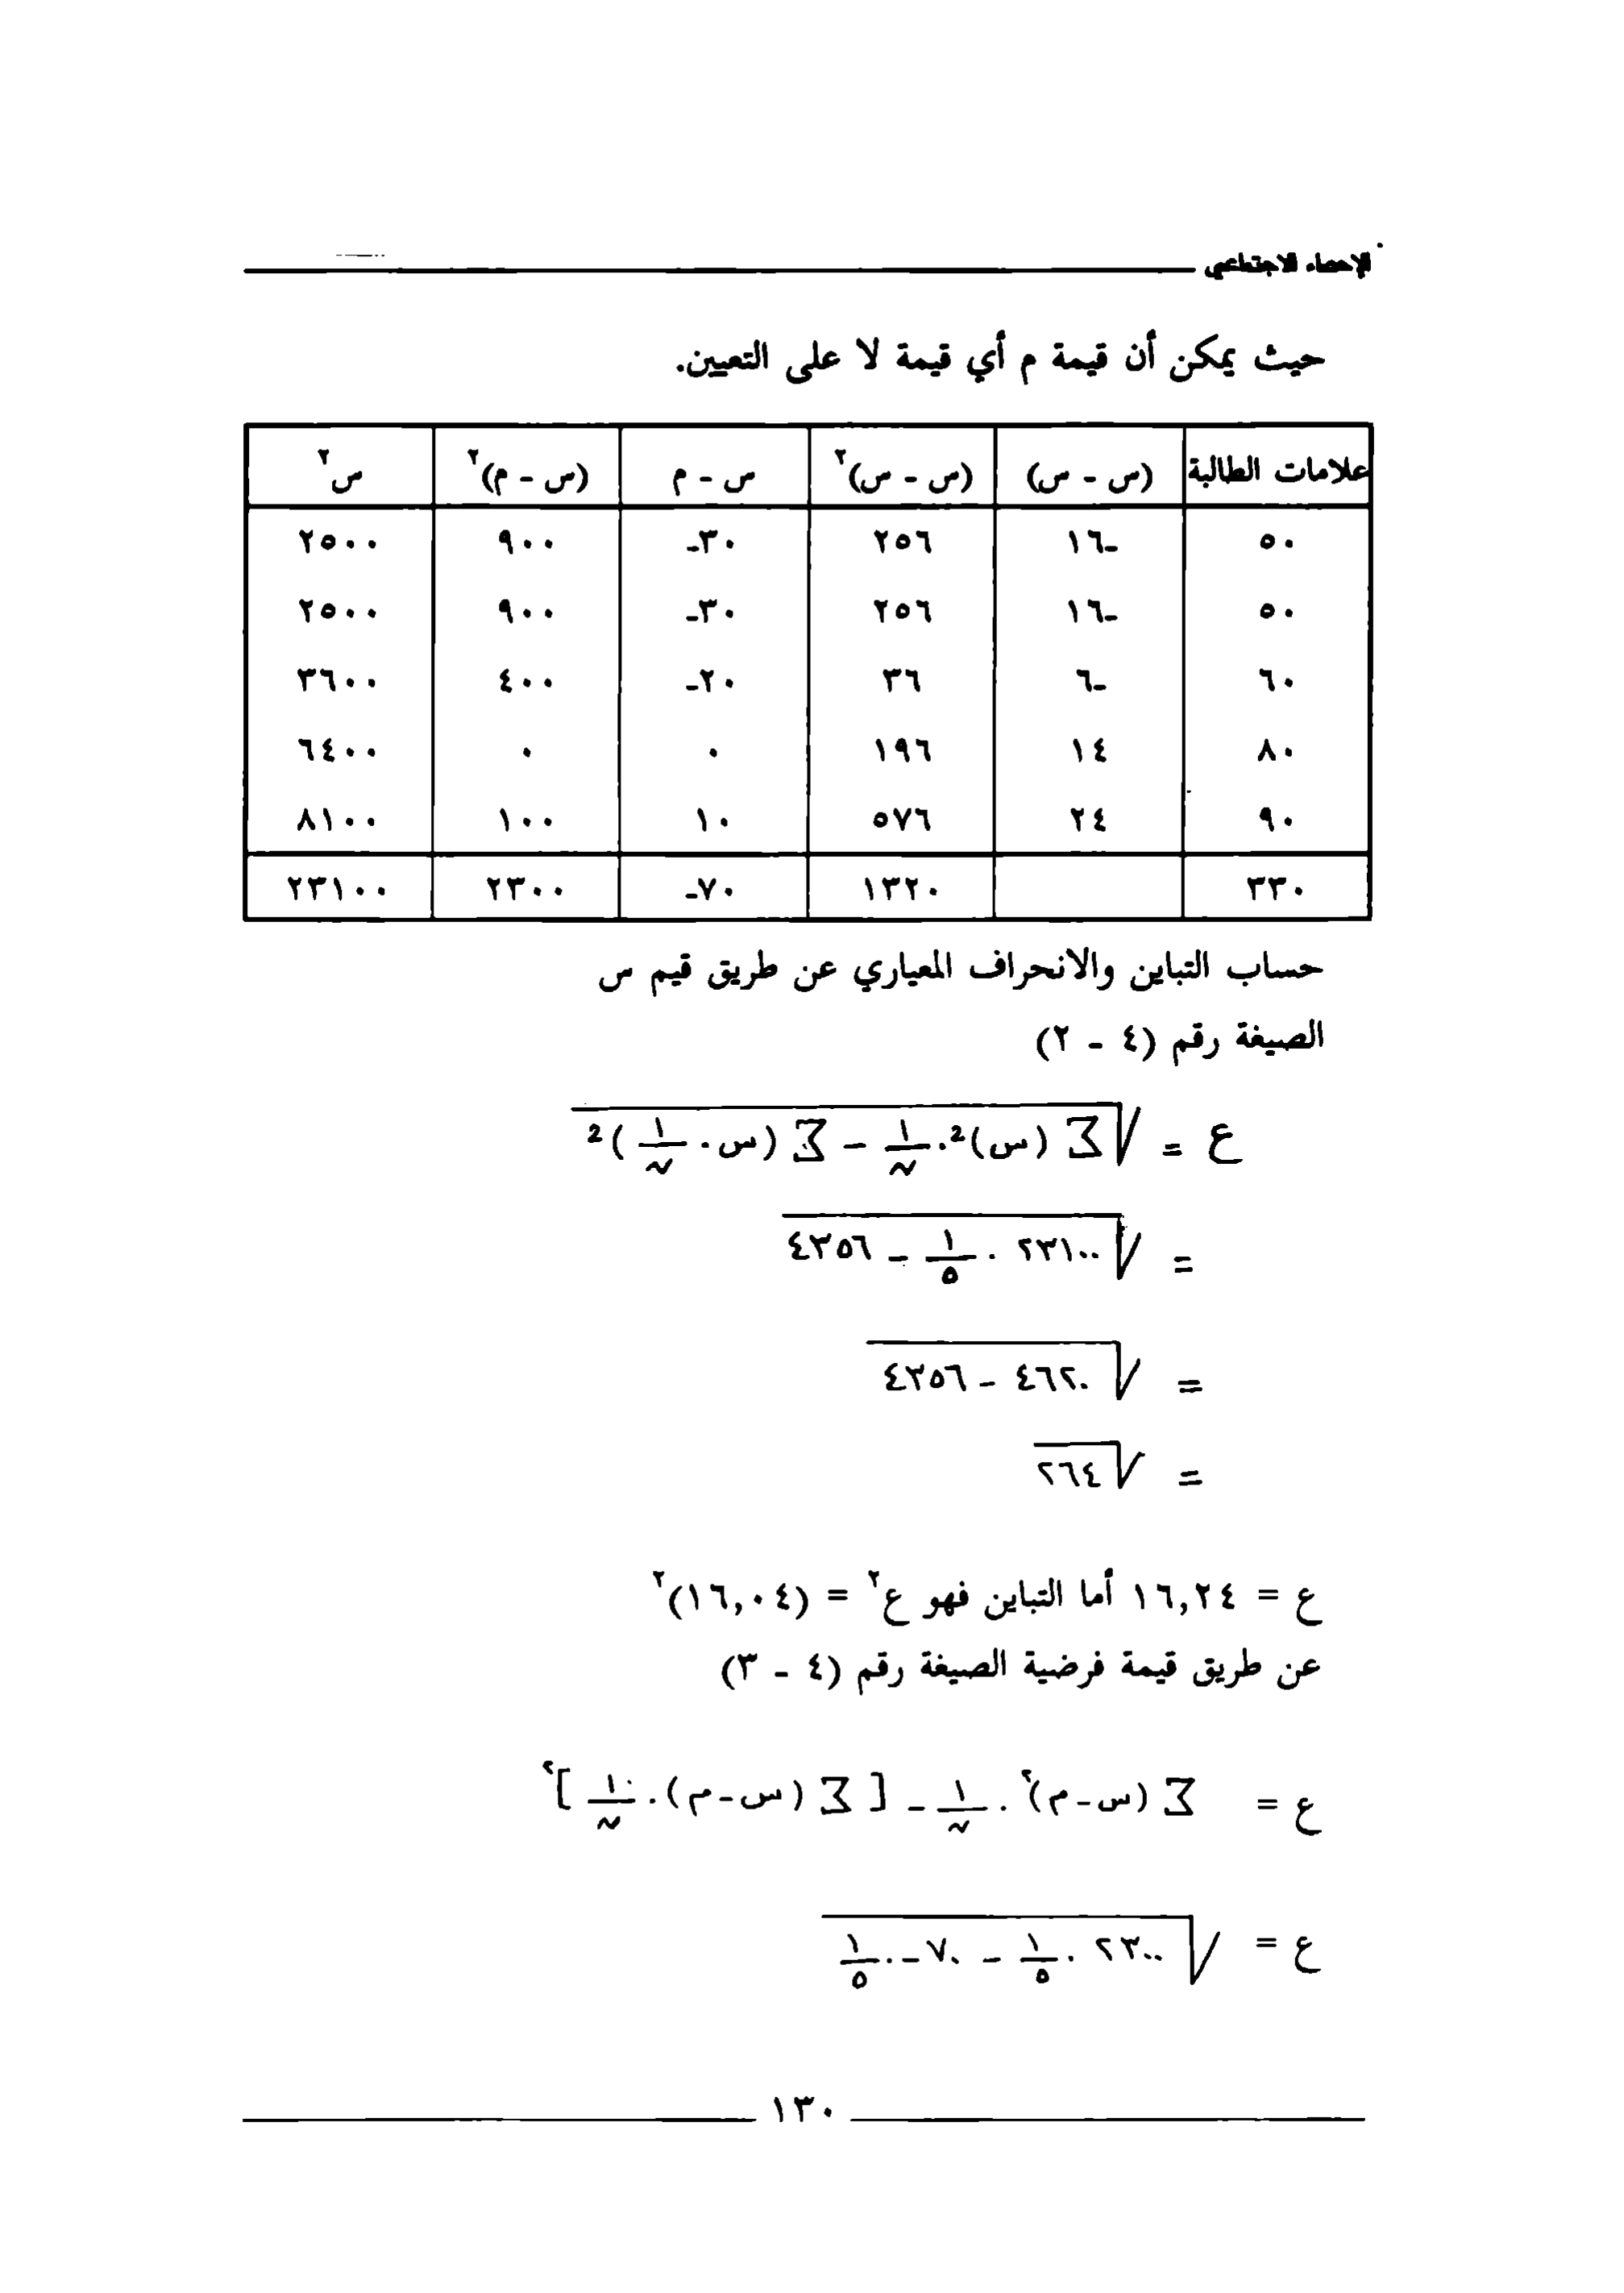 الإحصاء الاجتماعي
حيث يمكن أن قيمة م أي قيمة لا على التعيين.
علامات الطالبة | (س - س) | (س - س)٢ | س - م | (س - م)٢ | س٢
٥٠ | ـ١٦ | ٢٥٦ | ـ٣٠ | ٩٠٠ | ٢٥٠٠
٥٠ | ـ١٦ | ٢٥٦ | ـ٣٠ | ٩٠٠ | ٢٥٠٠
٦٠ | ـ٦ | ٣٦ | ـ٢٠ | ٤٠٠ | ٣٦٠٠
٨٠ | ١٤ | ١٩٦ | ٠ | ٠ | ٦٤٠٠
٩٠ | ٢٤ | ٥٧٦ | ١٠ | ١٠٠ | ٨١٠٠
٣٣٠ | | ١٣٢٠ | ـ٧٠ | ٢٣٠٠ | ٢٣١٠٠
حساب التباين والانحراف المعياري عن طريق قيم س
الصيغة رقم (٤ - ٢)
ع = √ Σ (س)2 . ١/ن - Σ (س . ١/ن)2
= √ ٢٣١٠٠ . ١/٥ - ٤٣٥٦
= √ ٤٦٢٠ - ٤٣٥٦
= √ ٢٦٤
ع = ١٦,٢٤ أما التباين فهو ع٢ = (١٦,٠٤)٢
عن طريق قيمة فرضية الصيغة رقم (٤ - ٣)
ع = Σ (س-م)٢ . ١/ن - [ Σ (س-م) . ١/ن ]٢
ع = √ ٢٣٠٠ . ١/٥ - ٧٠- . ١/٥
١٣٠